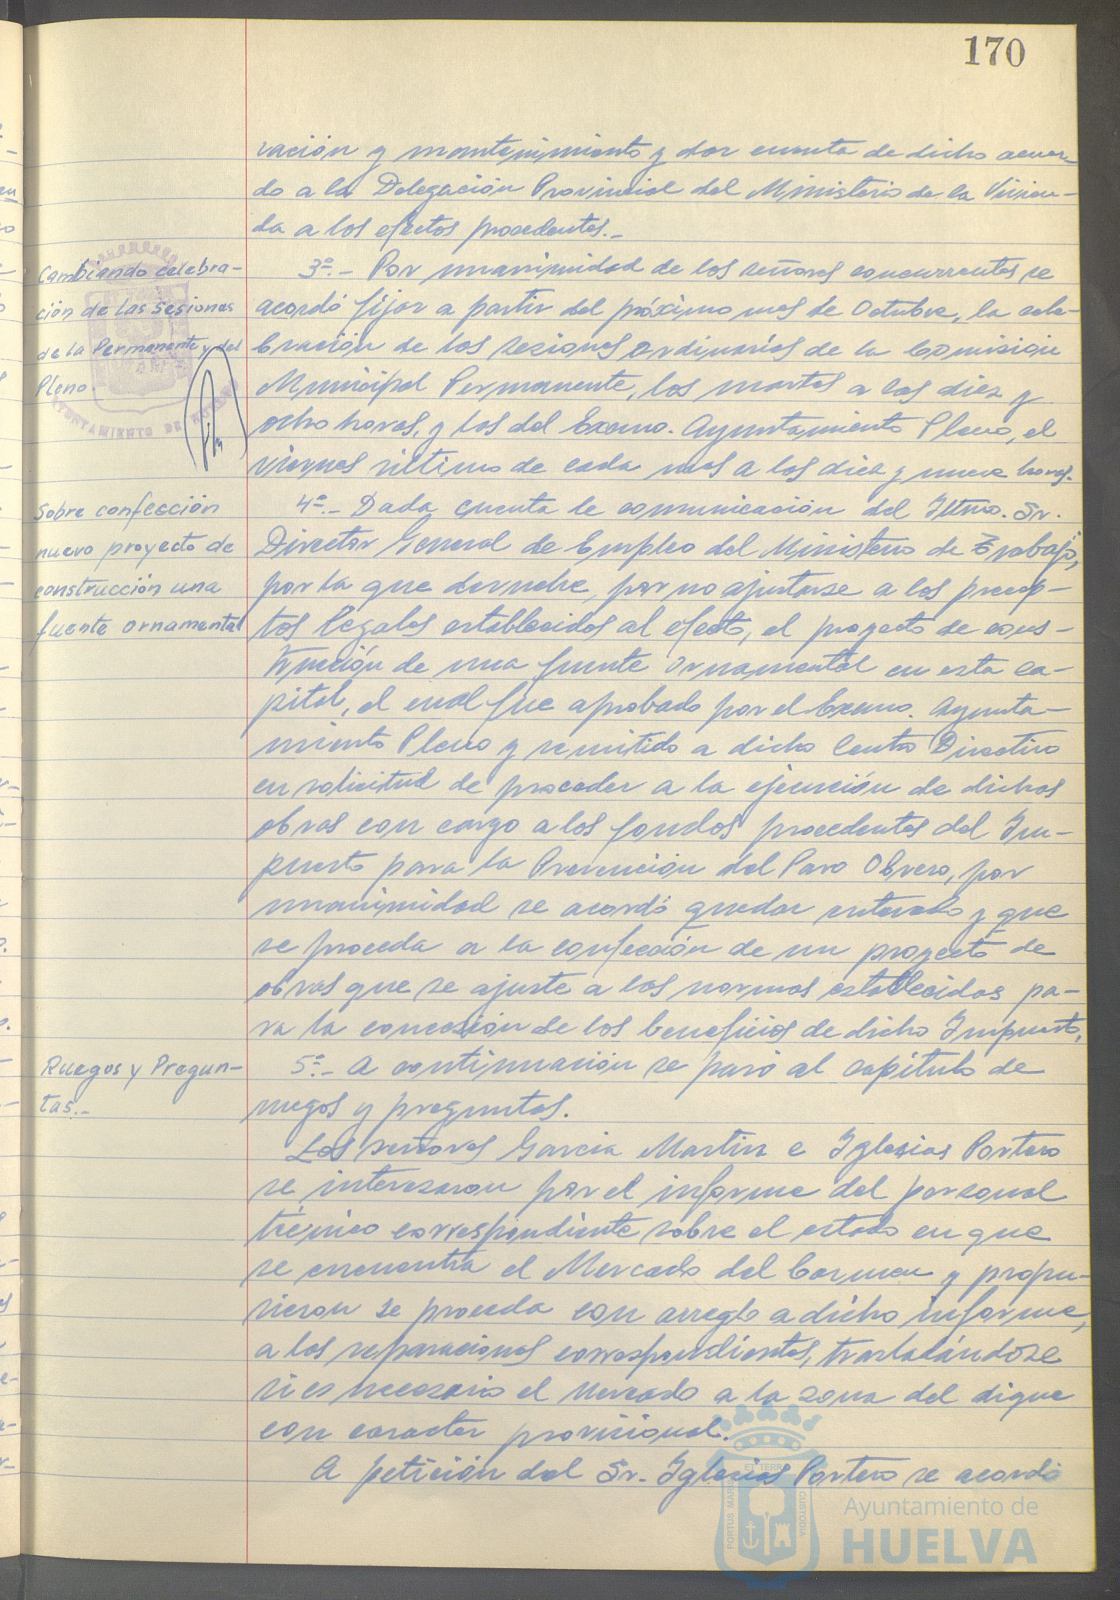 170
vación y mantenimiento y dar cuenta de dicho acuer-
do a la Delegación Provincial del Ministerio de la Vivien-
da a los efectos procedentes.-
Cambiando celebra-
ción de las sesiones
de la Permanente y del
Pleno.
AYUNTAMIENTO DE HUELVA
3º.- Por unanimidad de los señores concurrentes se
acordó fijar a partir del próximo mes de Octubre, la cele-
bración de las sesiones ordinarias de la Comisión
Municipal Permanente, los martes a las diez y
ocho horas, y las del Excmo. Ayuntamiento Pleno, el
viernes último de cada mes a las diez y nueve horas.
Sobre confección
nuevo proyecto de
construcción una
fuente ornamental
4º.- Dada cuenta de comunicación del Iltmo. Sr.
Director General de Empleo del Ministerio de Trabajo,
por la que devuelve, por no ajustarse a los precep-
tos legales establecidos al efecto, el proyecto de cons-
trucción de una fuente ornamental en esta ca-
pital, el cual fue aprobado por el Excmo. Ayunta-
miento Pleno y remitido a dicho Centro Directivo
en solicitud de proceder a la ejecución de dichas
obras con cargo a los fondos procedentes del Im-
puesto para la Prevención del Paro Obrero, por
unanimidad se acordó quedar enterado y que
se proceda a la confección de un proyecto de
obras que se ajuste a las normas establecidas pa-
ra la concesión de los beneficios de dicho Impuesto.
Ruegos y Pregun-
tas.-
5º.- A continuación se pasó al capítulo de
ruegos y preguntas.
Los señores García Martín e Iglesias Portero
se interesaron por el informe del personal
técnico correspondiente sobre el estado en que
se encuentra el Mercado del Carmen y propu-
sieron se proceda con arreglo a dicho informe,
a las reparaciones correspondientes, trasladándose
si es necesario el Mercado a la zona del dique
con caracter provisional.
A petición del Sr. Iglesias Portero se acordó
PORTUS MARIS ET TERRAE CUSTODIA
Ayuntamiento de
HUELVA